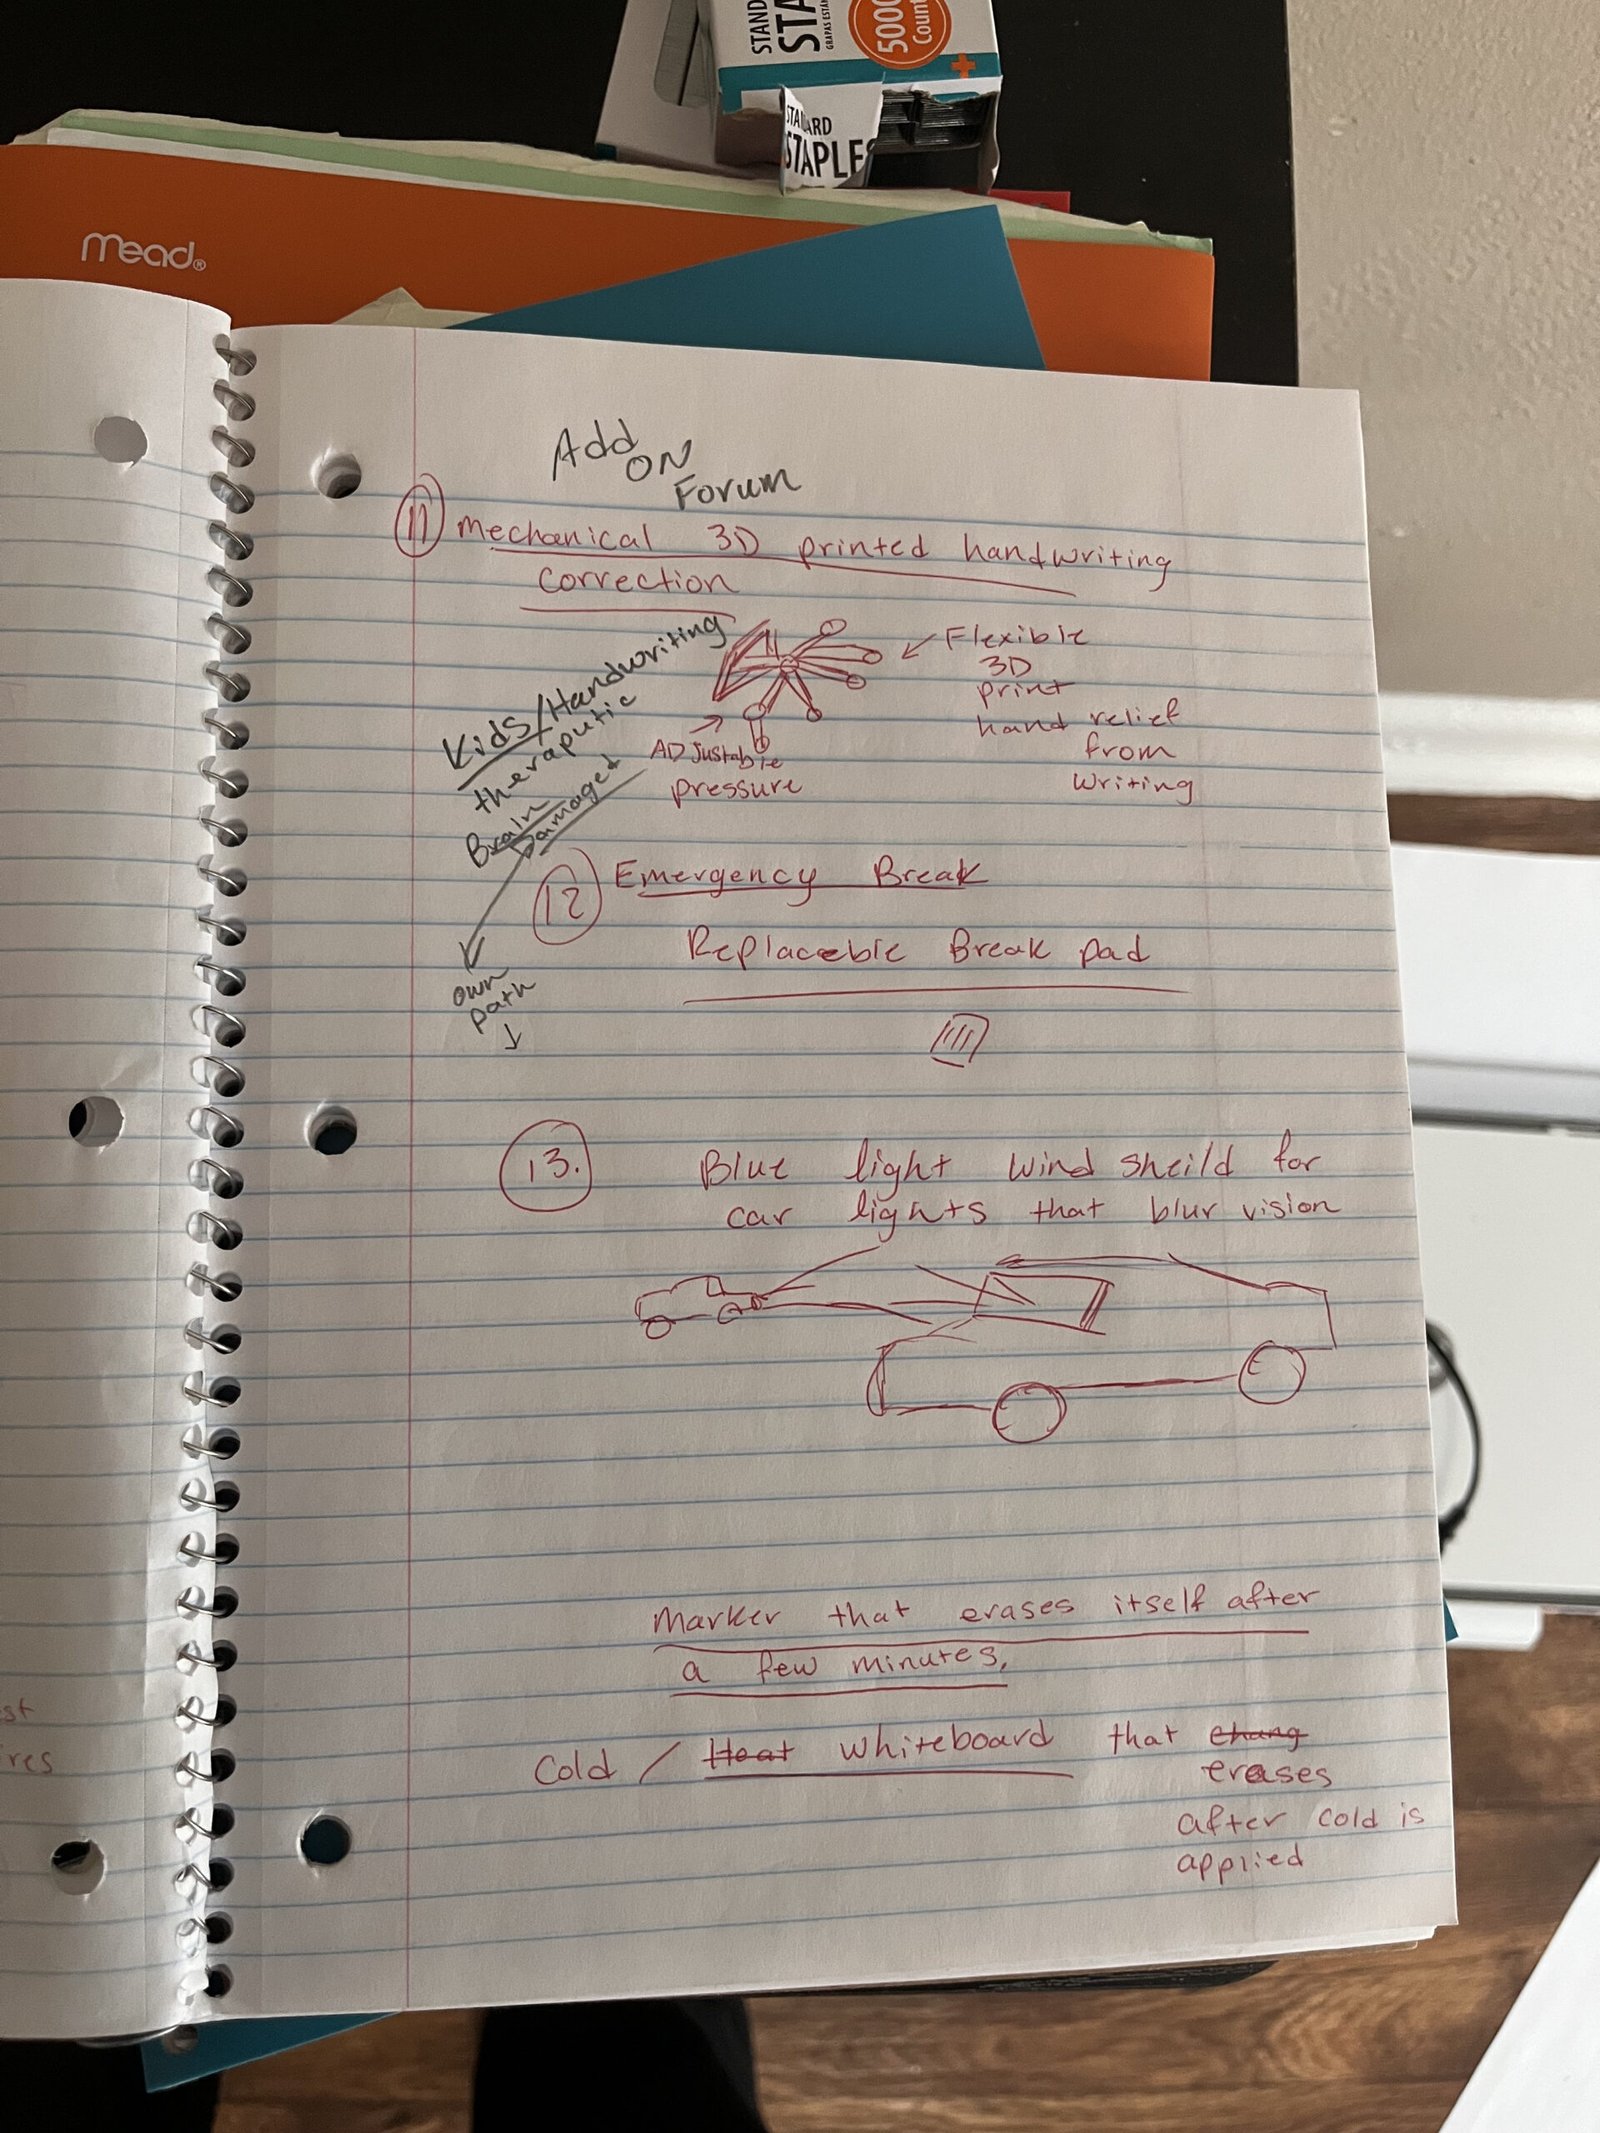 STAND
STA
GRAPAS ESTÁN
5000
Count
STANDARD
STAPLES
Mead®
Add
ON
Forum
11 Mechanical 3D printed handwriting
correction
Kids/Handwriting
theraputic
Brain
Damaged
own
path
Flexible
3D
print
hand relief
from
writing
ADJustable
pressure
12 Emergency Break
Replaceble Break pad
13. Blue light wind sheild for
car lights that blur vision
Marker that erases itself after
a few minutes.
Cold / Heat whiteboard that chang
erases
after cold is
applied
st
res